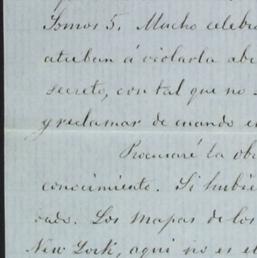 Somos 5. Mucho celebr
ataban á violarla abr
secreto, con tal que no
y reclamar de cuando e
Procuraré la ob
conocimiento. Si hubie
cado. Los mapas de los
New York, aqui no es el